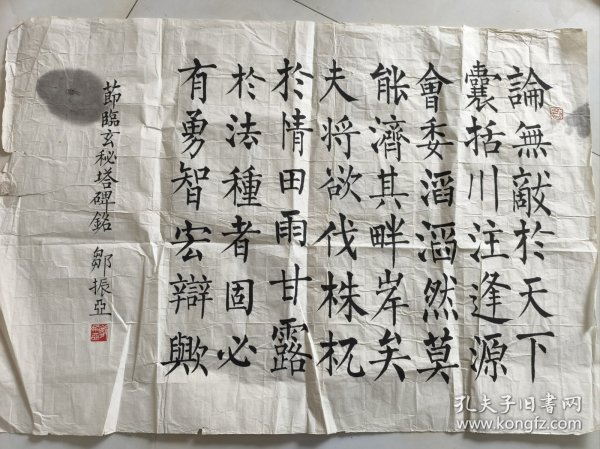 論無敵於天下
囊括川注逢源
會委滔滔然莫
能濟其畔岸矣
夫將欲伐株杌
於情田雨甘露
於法種者固必
有勇智宏辯歟
節臨玄秘塔碑銘 鄒振亞
孔夫子旧書网
www.kongfz.com